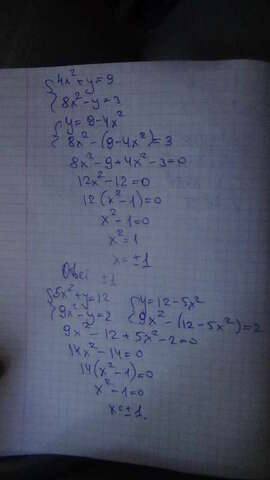 {4x²+y=9
{8x²-y=3
{y=9-4x²
{8x²-(9-4x²)=3
8x²-9+4x²-3=0
12x²-12=0
12(x²-1)=0
x²-1=0
x²=1
x=±1
Ответ ±1
{5x²+y=12 {y=12-5x²
{9x²-y=2 {9x²-(12-5x²)=2
9x²-12+5x²-2=0
14x²-14=0
14(x²-1)=0
x²-1=0
x=±1.